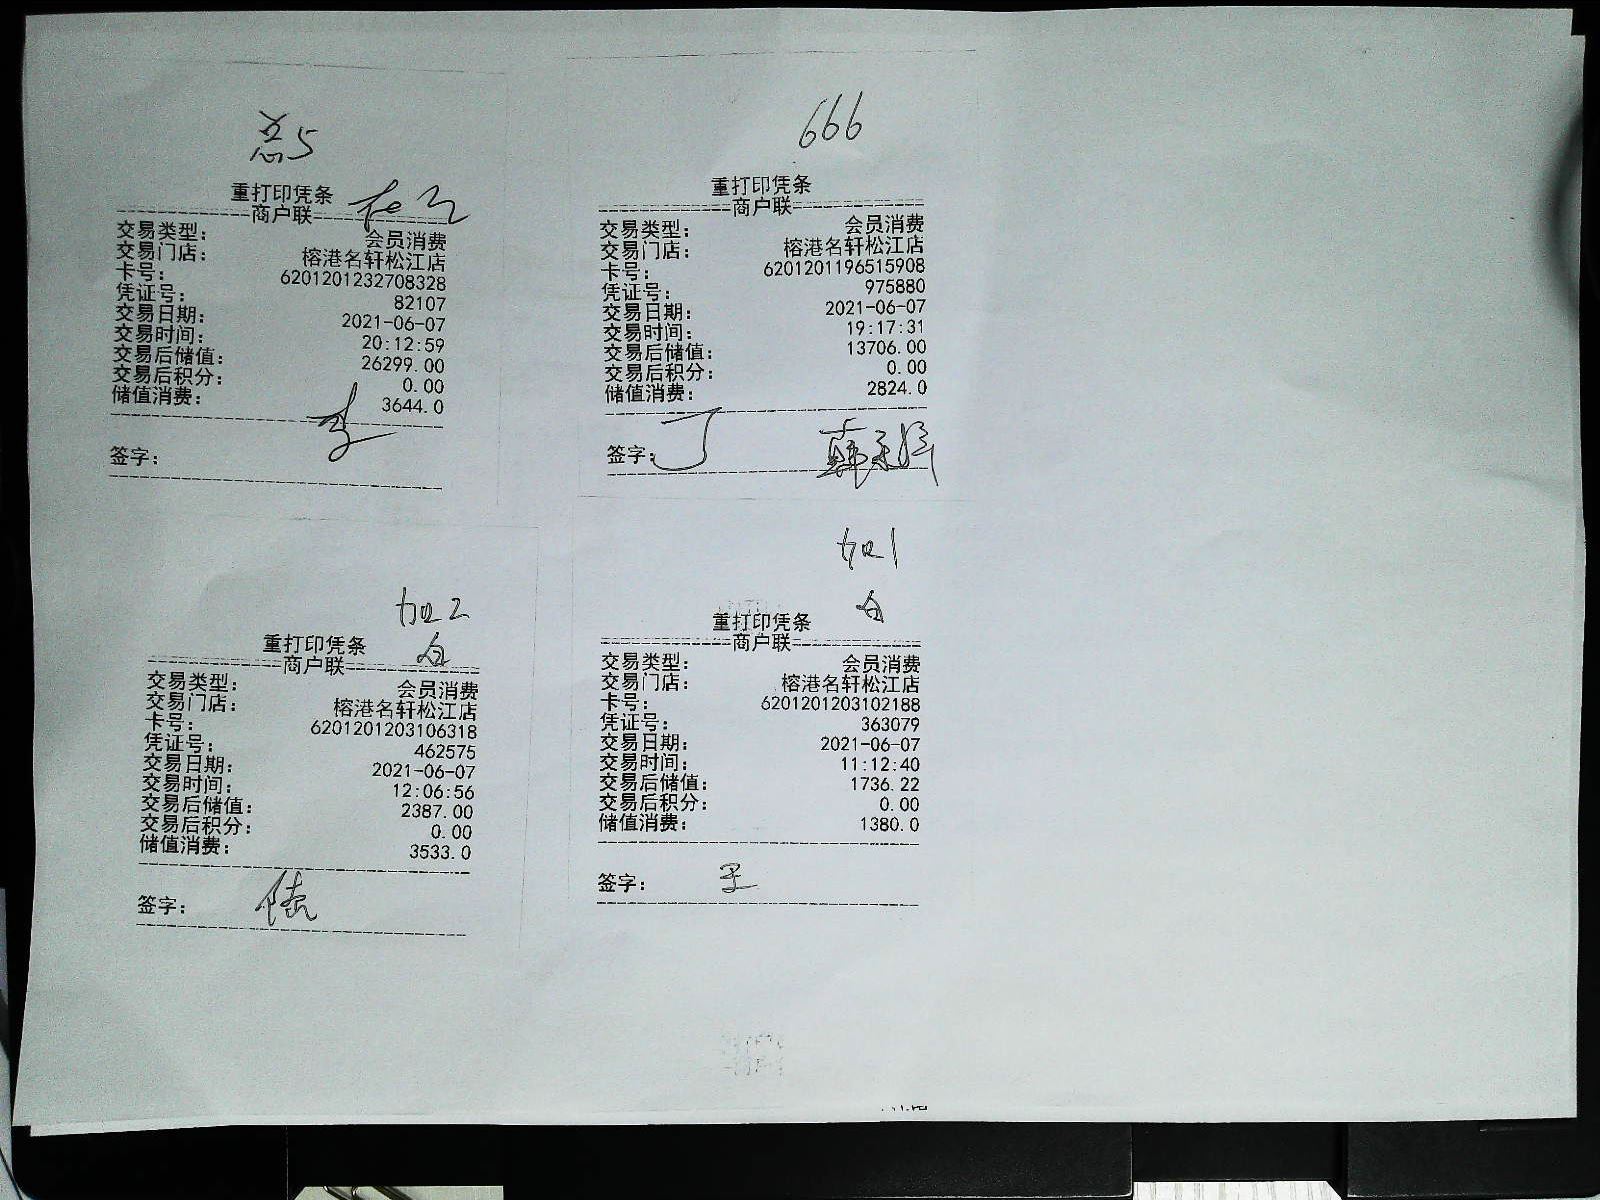 总5
重打印凭条
商户联
交易类型: 会员消费
交易门店: 榕港名轩松江店
卡号: 6201201232708328
凭证号: 82107
交易日期: 2021-06-07
交易时间: 20:12:59
交易后储值: 26299.00
交易后积分: 0.00
储值消费: 3644.0
李
签字:
666
重打印凭条
商户联
交易类型: 会员消费
交易门店: 榕港名轩松江店
卡号: 6201201196515908
凭证号: 975880
交易日期: 2021-06-07
交易时间: 19:17:31
交易后储值: 13706.00
交易后积分: 0.00
储值消费: 2824.0
签字: 丁
加2
重打印凭条
商户联
交易类型: 会员消费
交易门店: 榕港名轩松江店
卡号: 6201201203106318
凭证号: 462575
交易日期: 2021-06-07
交易时间: 12:06:56
交易后储值: 2387.00
交易后积分: 0.00
储值消费: 3533.0
签字: 陆
加1
重打印凭条
商户联
交易类型: 会员消费
交易门店: 榕港名轩松江店
卡号: 6201201203102188
凭证号: 363079
交易日期: 2021-06-07
交易时间: 11:12:40
交易后储值: 1736.22
交易后积分: 0.00
储值消费: 1380.0
签字: